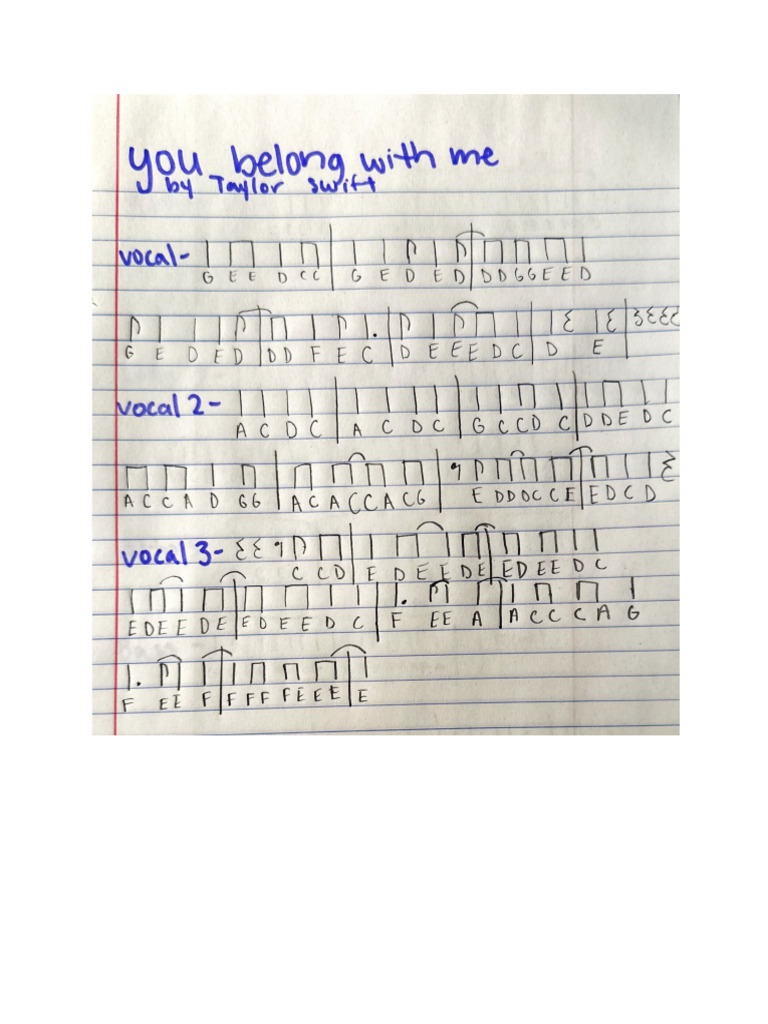 you belong with me
by Taylor Swift
vocal-
G E E D C C G E D E D D D G G E E D
G E D E D D D F E C D E E E D C D E
vocal 2-
A C D C A C D C G C C D C D D E D C
A C C A D G G A C A C C A C G E D D D C C E E D C D
vocal 3-
C C D E D E E D E E D E E D C
E D E E D E E D E E D C F E E A A C C C A G
F E E F F F F F E E E E